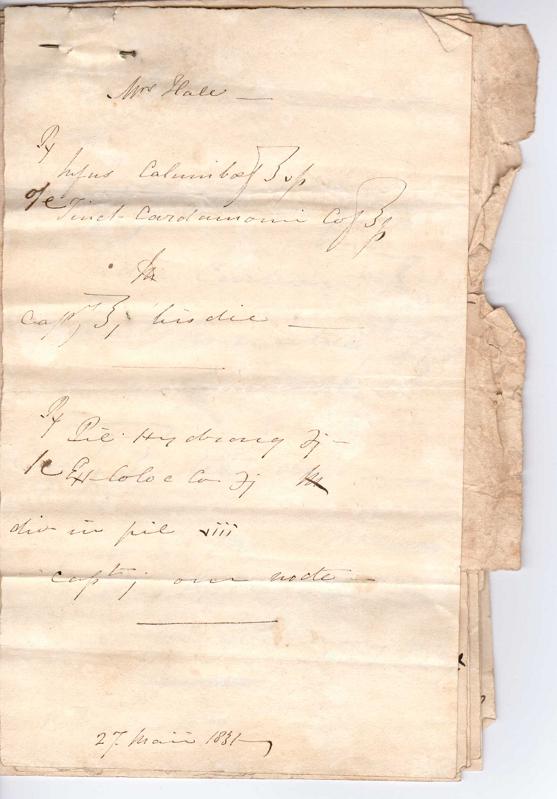 Mrs Hale —
Infus Calumbae ʒ
Tinct Cardamomi Co ʒ
M
capt ʒj bis die —
Pil Hydrarg ℈j —
Ext Coloc Co ℈j M
div in pil viii
capt j omn nocte —
27 Maii 1831